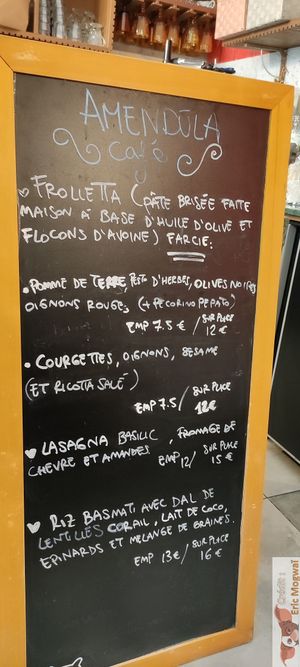 AMENDULA
Café
FROLLETTA (PÂTE BRISÉE FAITE
MAISON À BASE D'HUILE D'OLIVE ET
FLOCONS D'AVOINE) FARCIE:
• POMME DE TERRE, PESTO D'HERBES, OLIVES NOIRES,
OIGNONS ROUGES, (+ PECORINO PEPATO)
EMP 7.5 € / SUR PLACE 12 €
• COURGETTES, OIGNONS, SESAME
(ET RICOTTA SALÉ)
EMP 7.5 / SUR PLACE 12€
LASAGNA BASILIC, FROMAGE DE
CHEVRE ET AMANDES. EMP 12 / SUR PLACE 15 €
RIZ BASMATI AVEC DAL DE
LENTILLES CORAIL, LAIT DE COCO,
EPINARDS ET MELANGE DE GRAINES.
EMP 13€ / SUR PLACE 16 €
Crédit :
Eric Mogwaï